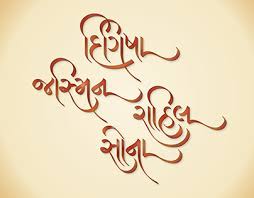 દિગિષા
જસ્મિન
રાહિલ
સોના